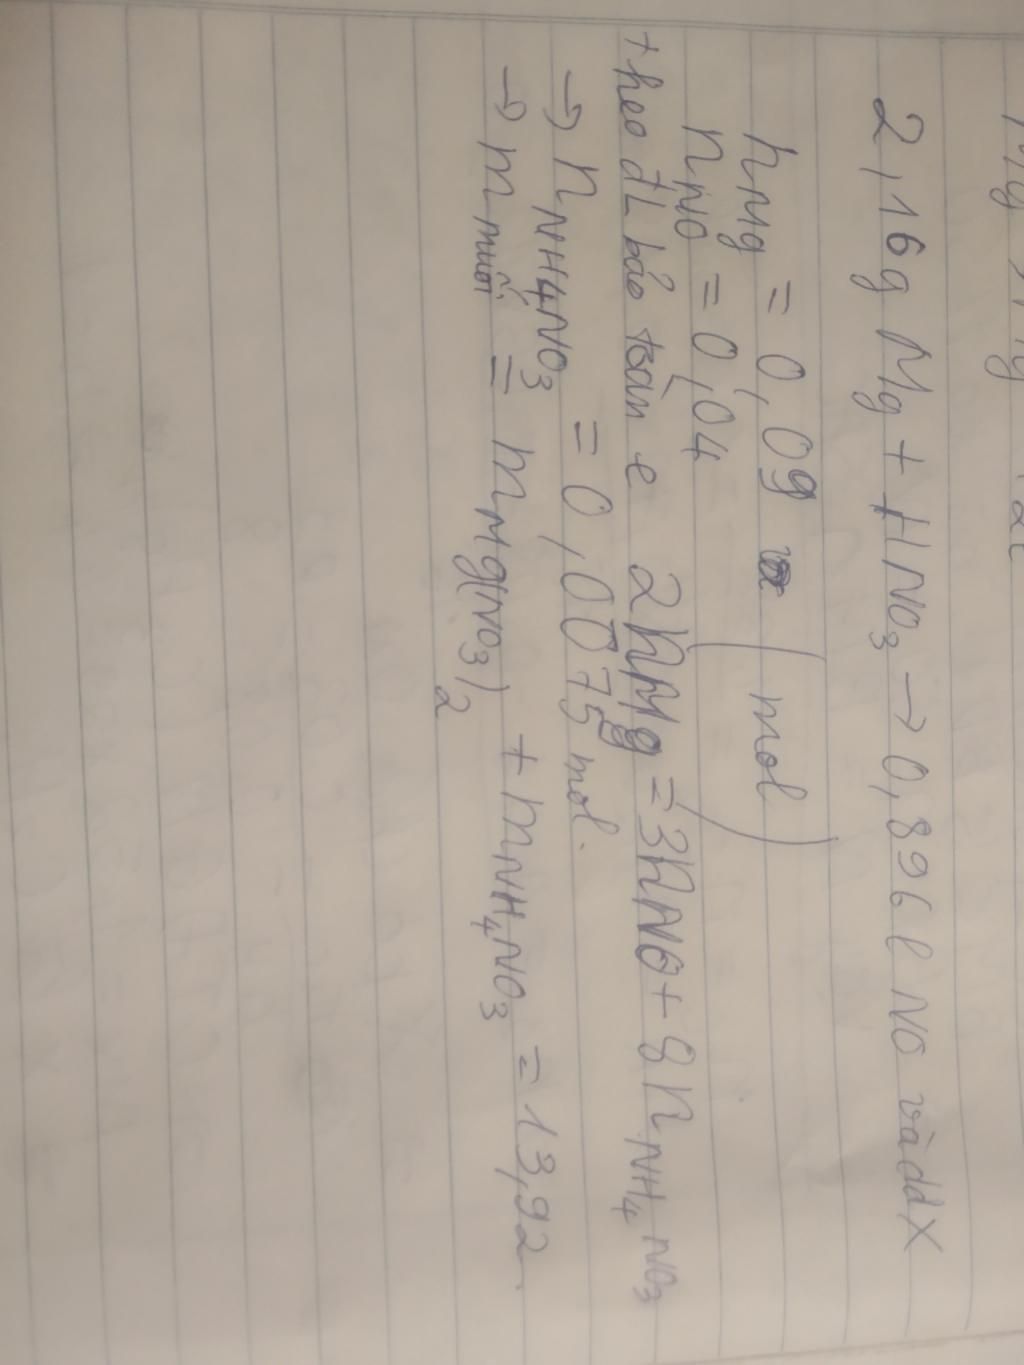 2,16g Mg + HNO3 → 0,896 l NO và dd X
nMg = 0,09 (mol)
nNO = 0,04
theo đL bảo toàn e 2nMg = 3nNO + 8nNH4NO3
→ nNH4NO3 = 0,0075 mol.
→ m muối = mMg(NO3)2 + mNH4NO3 = 13,92.